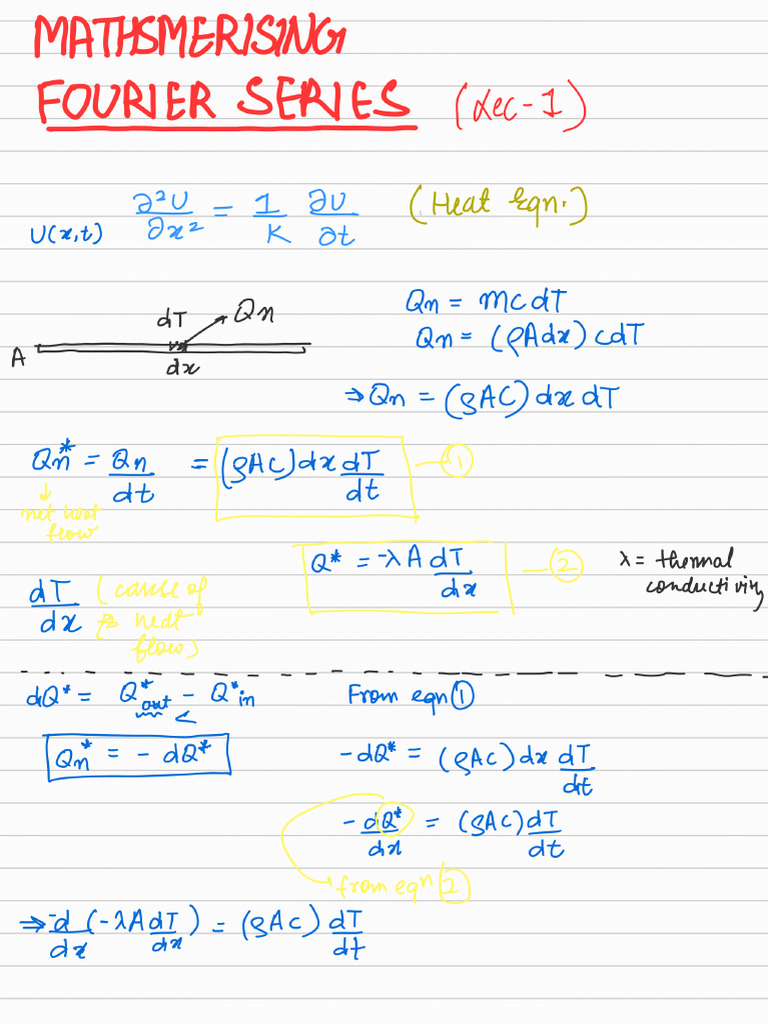 MATHSMERISING
FOURIER SERIES (Lec-1)
U(x,t) ∂²U/∂x² = 1/K ∂U/∂t (Heat Eqn.)
dT Qn
A
dx
Qn = mcdT
Qn = (ρAdx) cdT
⇒ Qn = (ρAC) dx dT
Qn* = Qn/dt = (ρAC) dx dT/dt — ①
↓
net heat
flow
Q* = -λ A dT/dx — ②
λ = thermal
conductiviny
dT/dx (cause of
heat
flow)
dQ* = Q*out - Q*in
<
Qn* = - dQ*
From eqn ①
-dQ* = (ρAc) dx dT/dt
-dQ*/dx = (ρAC) dT/dt
from eqn ②
⇒ -d/dx (-λA dT/dx) = (ρAC) dT/dt